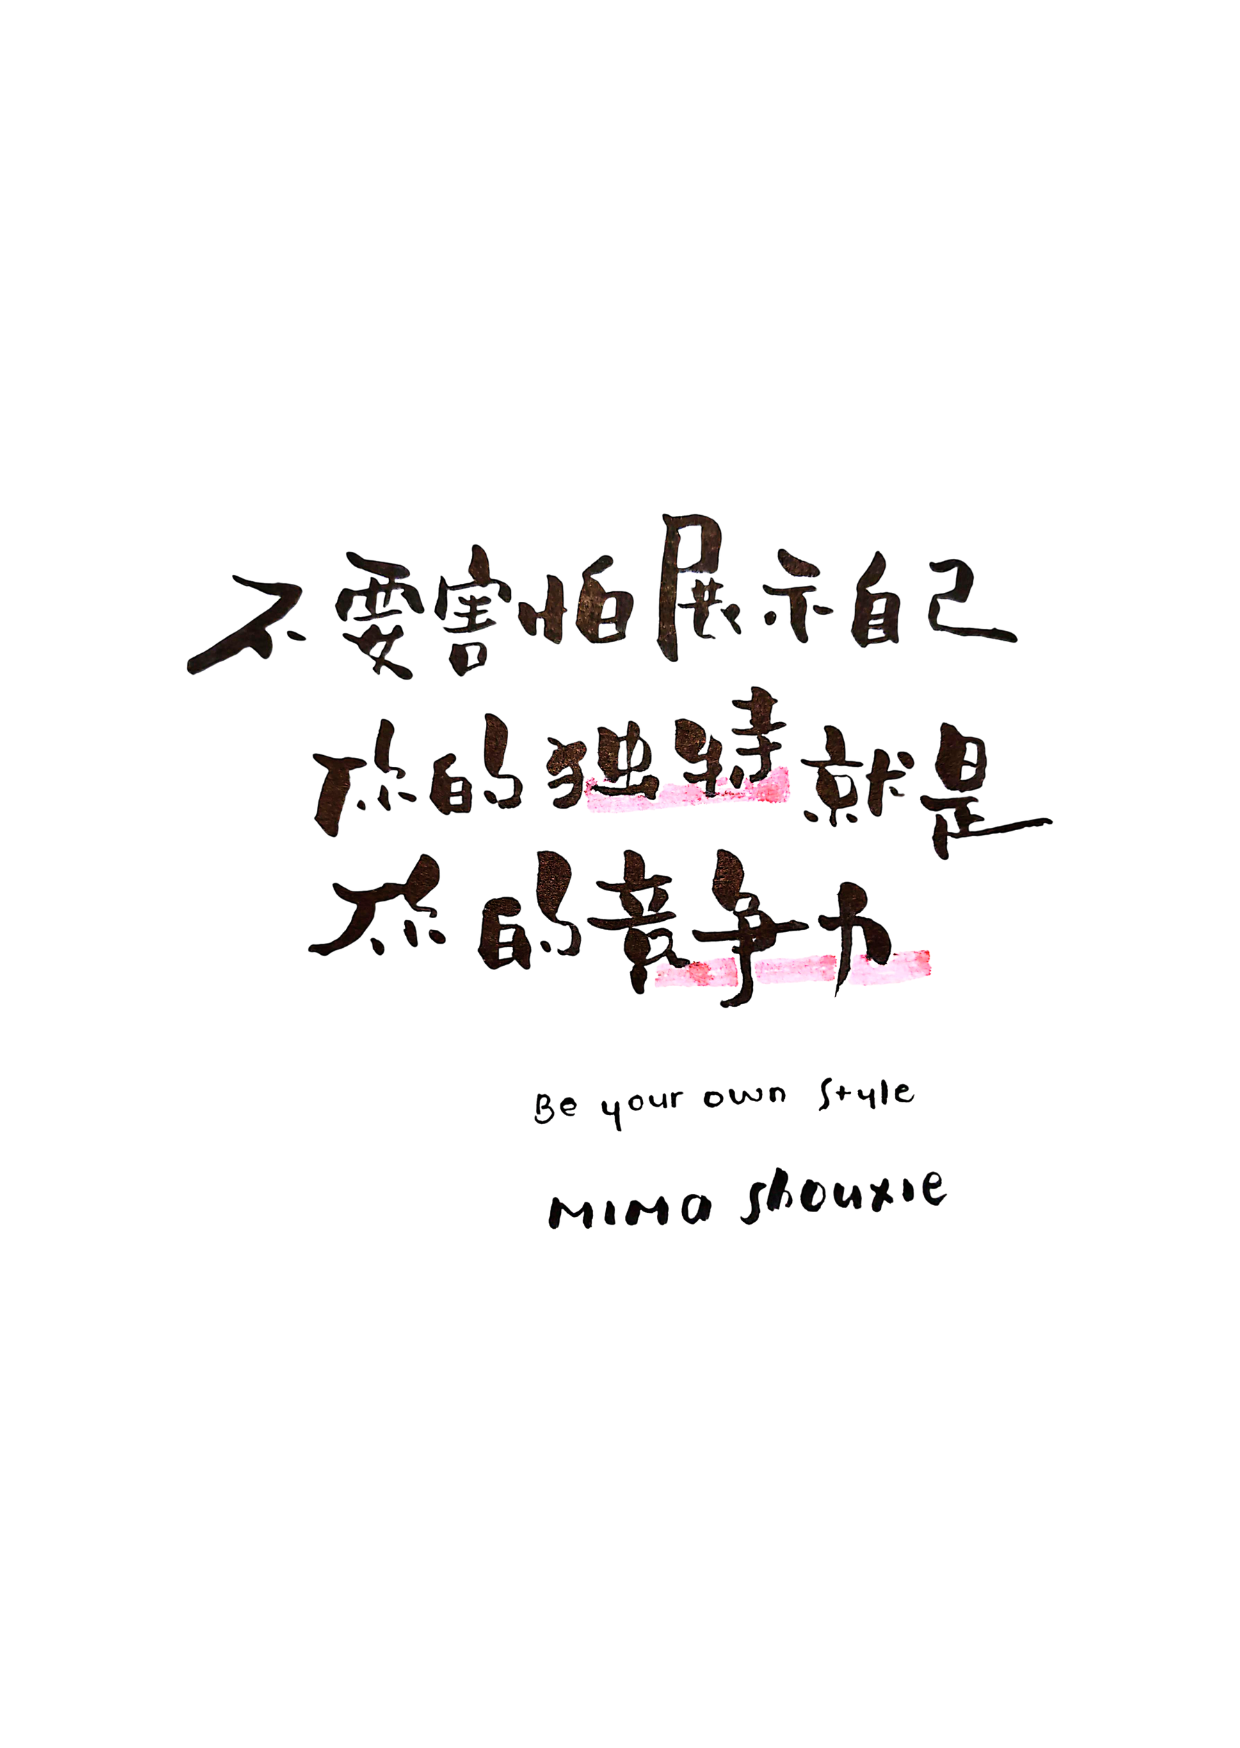 不要害怕展示自己
你的独特就是
你的竞争力
Be your own style
MIMA shouxie